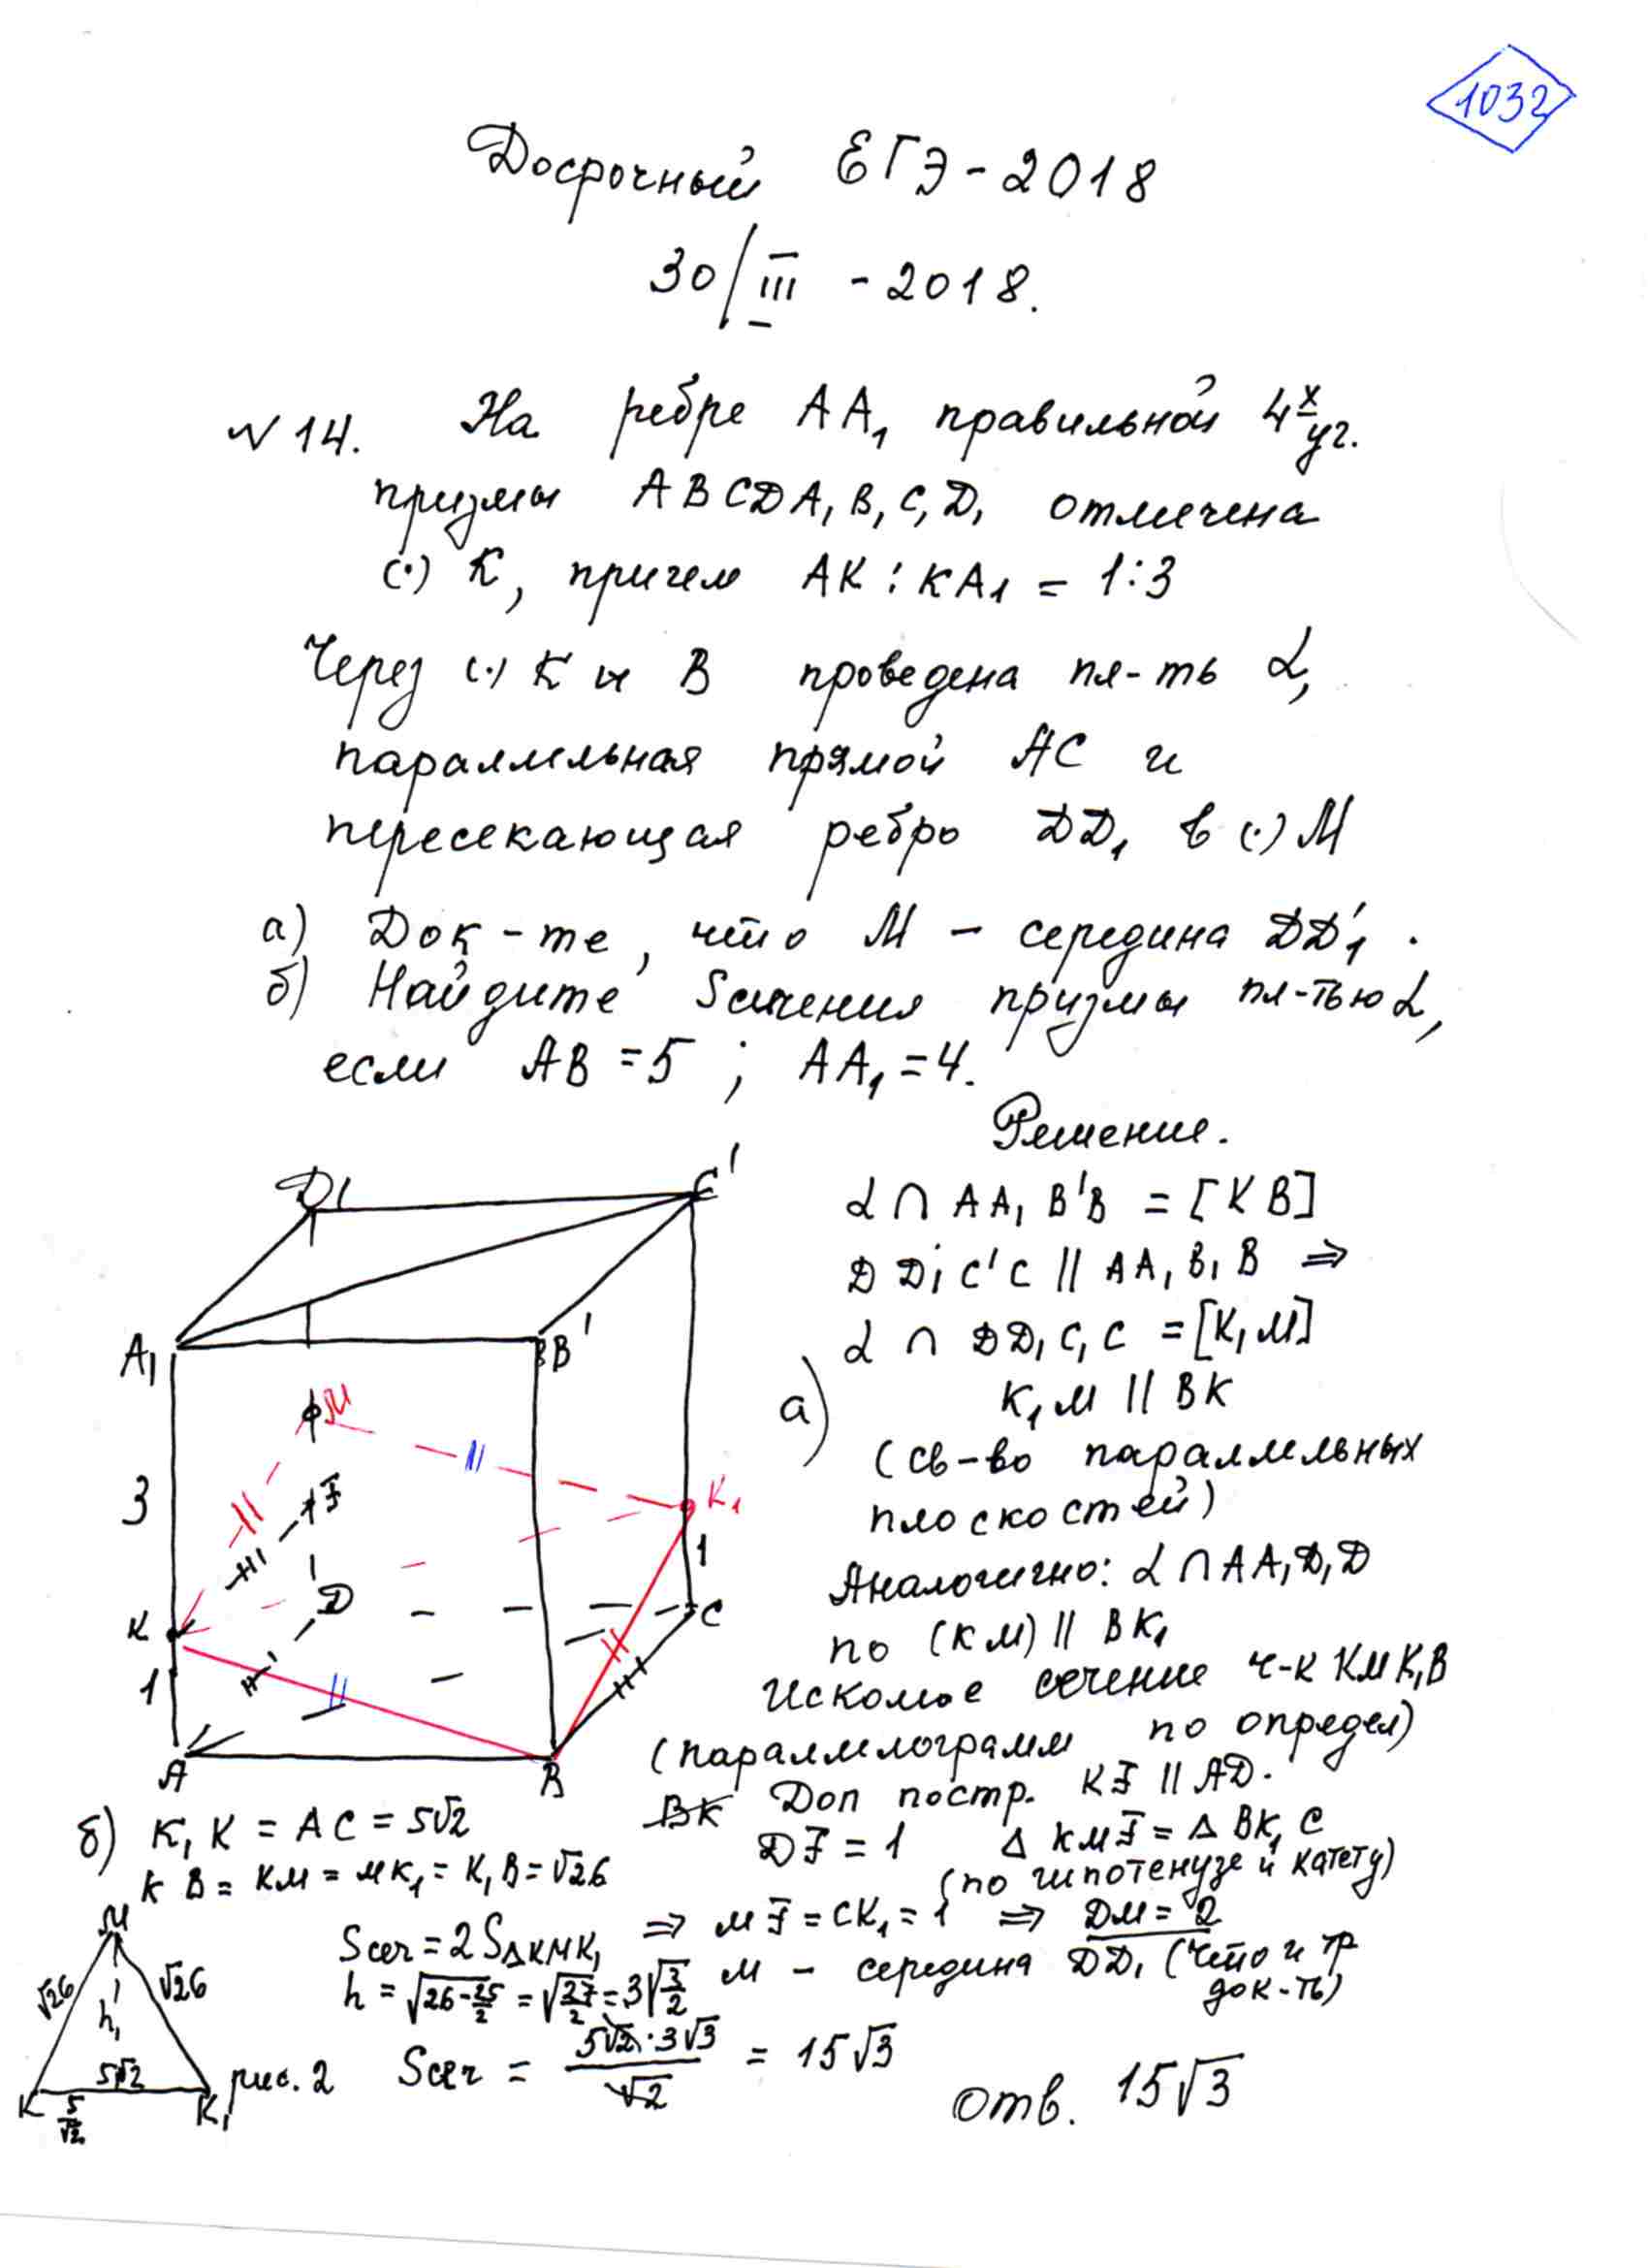 1032
Досрочный ЕГЭ-2018
30/III - 2018.
N14. На ребре AA₁ правильной 4х уг.
призмы ABCDA₁B₁C₁D₁ отмечена
(·) K, причем AK : KA₁ = 1:3
Через (·) K и B проведена пл-ть α,
параллельная прямой AC и
пересекающая ребро DD₁ в (·) M
а) Док-те, что M – середина DD'₁.
б) Найдите Sсечения призмы пл-тью α,
если AB = 5 ; AA₁ = 4.
Решение.
α ∩ AA₁B'B = [KB]
DD₁C'C || AA₁B₁B ⇒
α ∩ DD₁C₁C = [K₁M]
а) K₁M || BK
(св-во параллельных
плоскостей)
Аналогично: α ∩ AA₁D₁D
по (KM) || BK₁
Искомое сечение ч-к KMK₁B
(параллелограмм по определ)
BK Доп постр. KF || AD.
DF = 1 Δ KMF = Δ BK₁C
(по гипотенузе и катету)
⇒ MF = CK₁ = 1 ⇒ DM = 2
M – середина DD₁ (что и тр
док-ть)
D₁
C'
A₁
B'
M
3
F
K₁
1
D
K
C
1
A
B
б) K₁K = AC = 5√2
KB = KM = MK₁ = K₁B = √26
Sсеч = 2SΔKMK₁
h = √(26-25/2) = √(27/2) = 3√(3/2)
Sсеч = (5√2 · 3√3)/√2 = 15√3
M
√26
√26
h₁
5√2
K
5/√2
K₁
рис. 2
Отв. 15√3